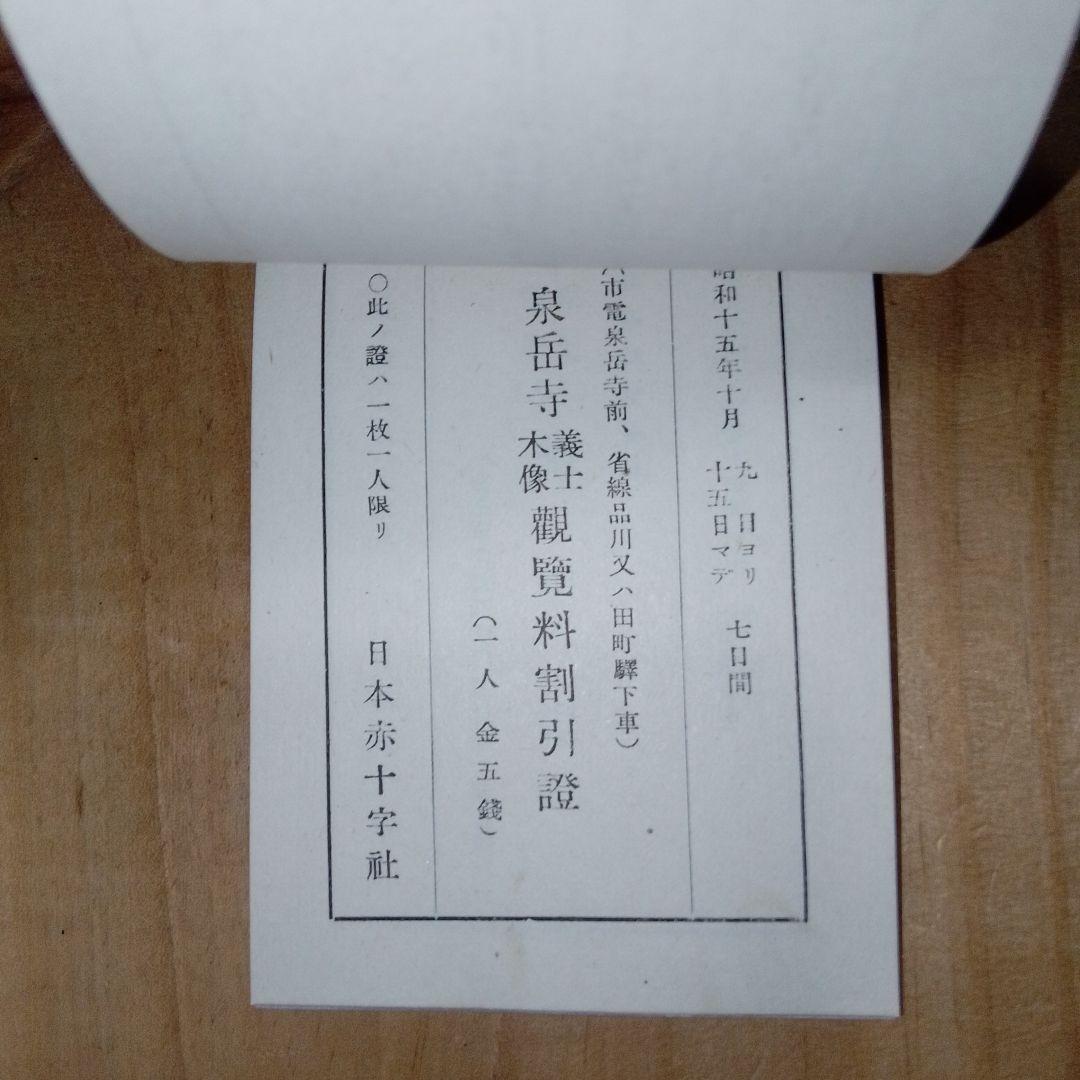 昭和十五年十月 九日ヨリ 七日間
十五日マデ
(市電泉岳寺前、省線品川又ハ田町驛下車)
泉岳寺義士木像觀覽料割引證
(一人金五錢)
○此ノ證ハ一枚一人限リ 日本赤十字社